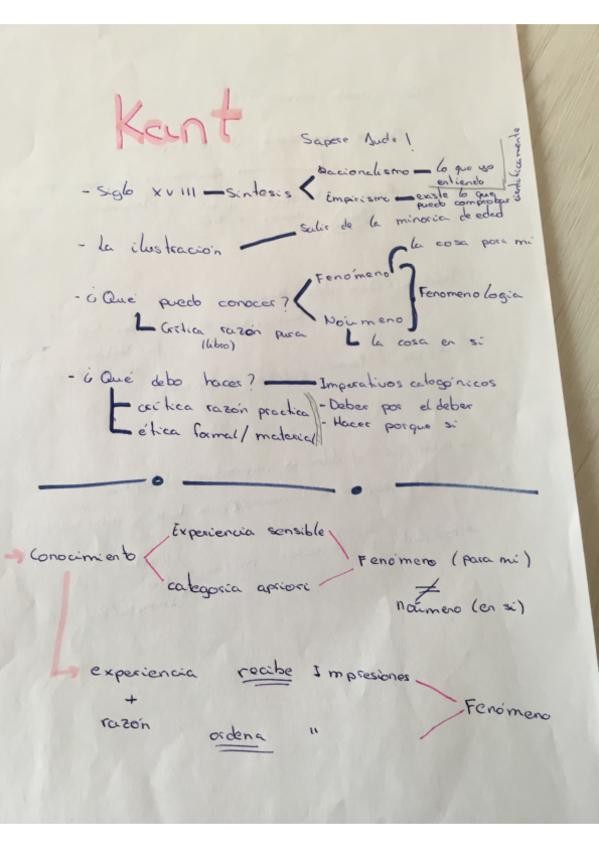 Kant
Sapere Aude!
- Siglo XVIII — Sintesis < Racionalismo — lo que yo entiendo
Empirismo — existe lo que puedo comprobar científicamente
- La ilustración — Salir de la minoria de edad
- ¿Qué puedo conocer? < Fenómeno la cosa para mi
Noúmeno la cosa en si
Fenomenologia
Crítica razón pura
(libro)
- ¿Qué debo hacer? — Imperativos categónicos
crítica razón practica - Deber por el deber
ética formal/material - Hacer porque si
Conocimiento
Experiencia sensible
categoria apriori
Fenómeno (para mi)
≠
noúmero (en si)
experiencia recibe Impresiones
+
razón
ordena "
Fenómeno